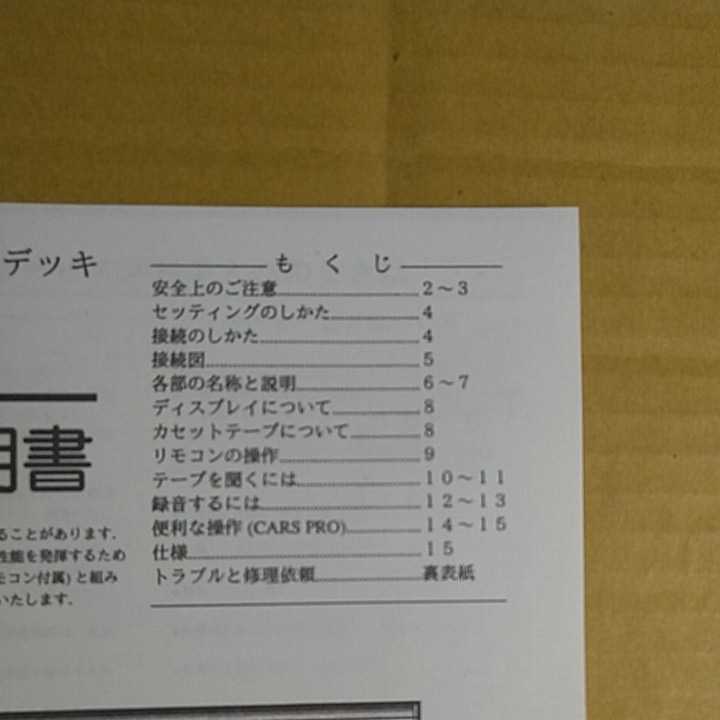 デッキ
もくじ
安全上のご注意 2～3
セッティングのしかた 4
接続のしかた 4
接続図 5
各部の名称と説明 6～7
ディスプレイについて 8
カセットテープについて 8
リモコンの操作 9
テープを聞くには 10～11
録音するには 12～13
便利な操作 (CARS PRO) 14～15
仕様 15
トラブルと修理依頼 裏表紙
明書
ることがあります.
性能を発揮するため
モコン付属) と組み
いたします.